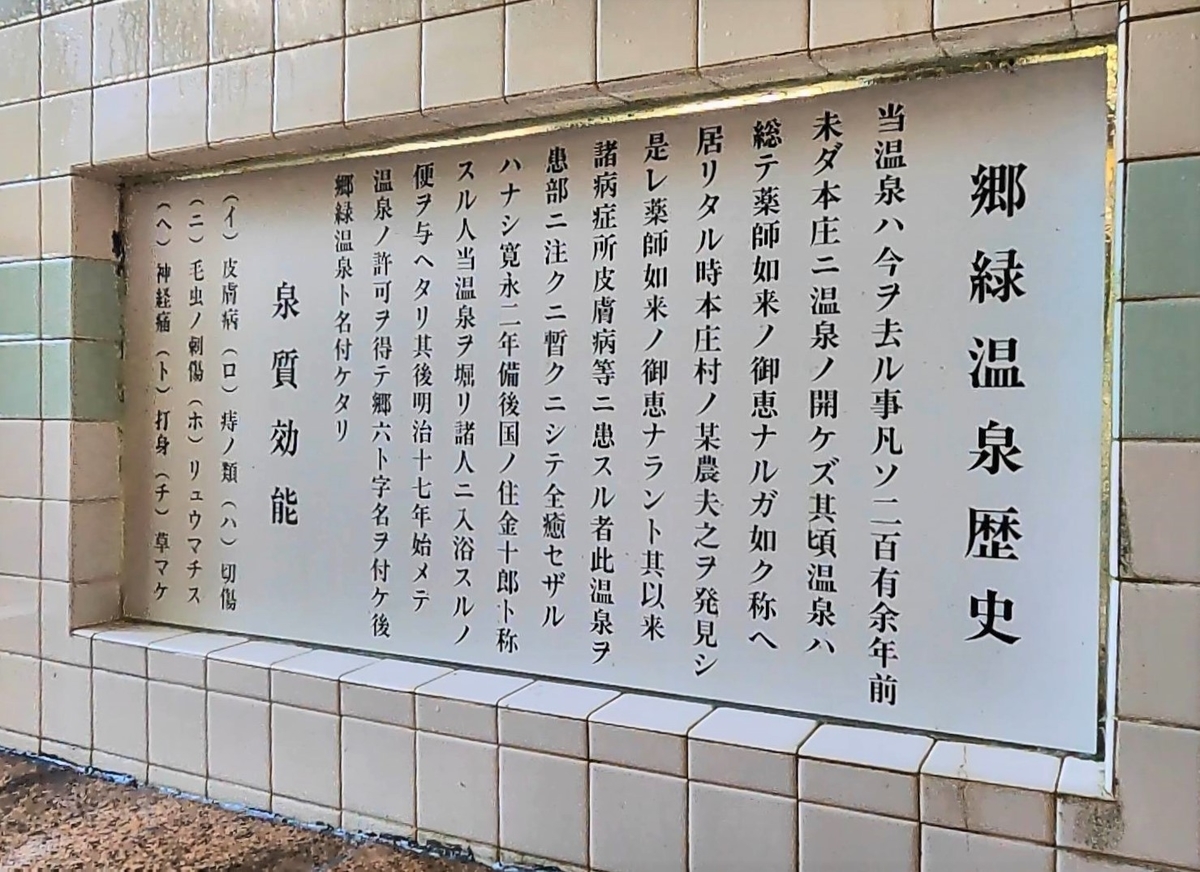 郷緑温泉歴史
当温泉ハ今ヲ去ル事凡ソ二百有余年前
未ダ本庄ニ温泉ノ開ケズ其頃温泉ハ
総テ薬師如来ノ御恵ナルガ如ク称ヘ
居リタル時本庄村ノ某農夫之ヲ発見シ
是レ薬師如来ノ御恵ナラント其以来
諸病症所皮膚病等ニ患スル者此温泉ヲ
患部ニ注クニ暫クニシテ全癒セザル
ハナシ寛永二年備後国ノ住金十郎ト称
スル人当温泉ヲ堀リ諸人ニ入浴スルノ
便ヲ与ヘタリ其後明治十七年始メテ
温泉ノ許可ヲ得テ郷六ト字名ヲ付ケ後
郷緑温泉ト名付ケタリ
泉質効能
（イ）皮膚病（ロ）痔ノ類（ハ）切傷
（ニ）毛虫ノ刺傷（ホ）リュウマチス
（ヘ）神経痛（ト）打身（チ）草マケ